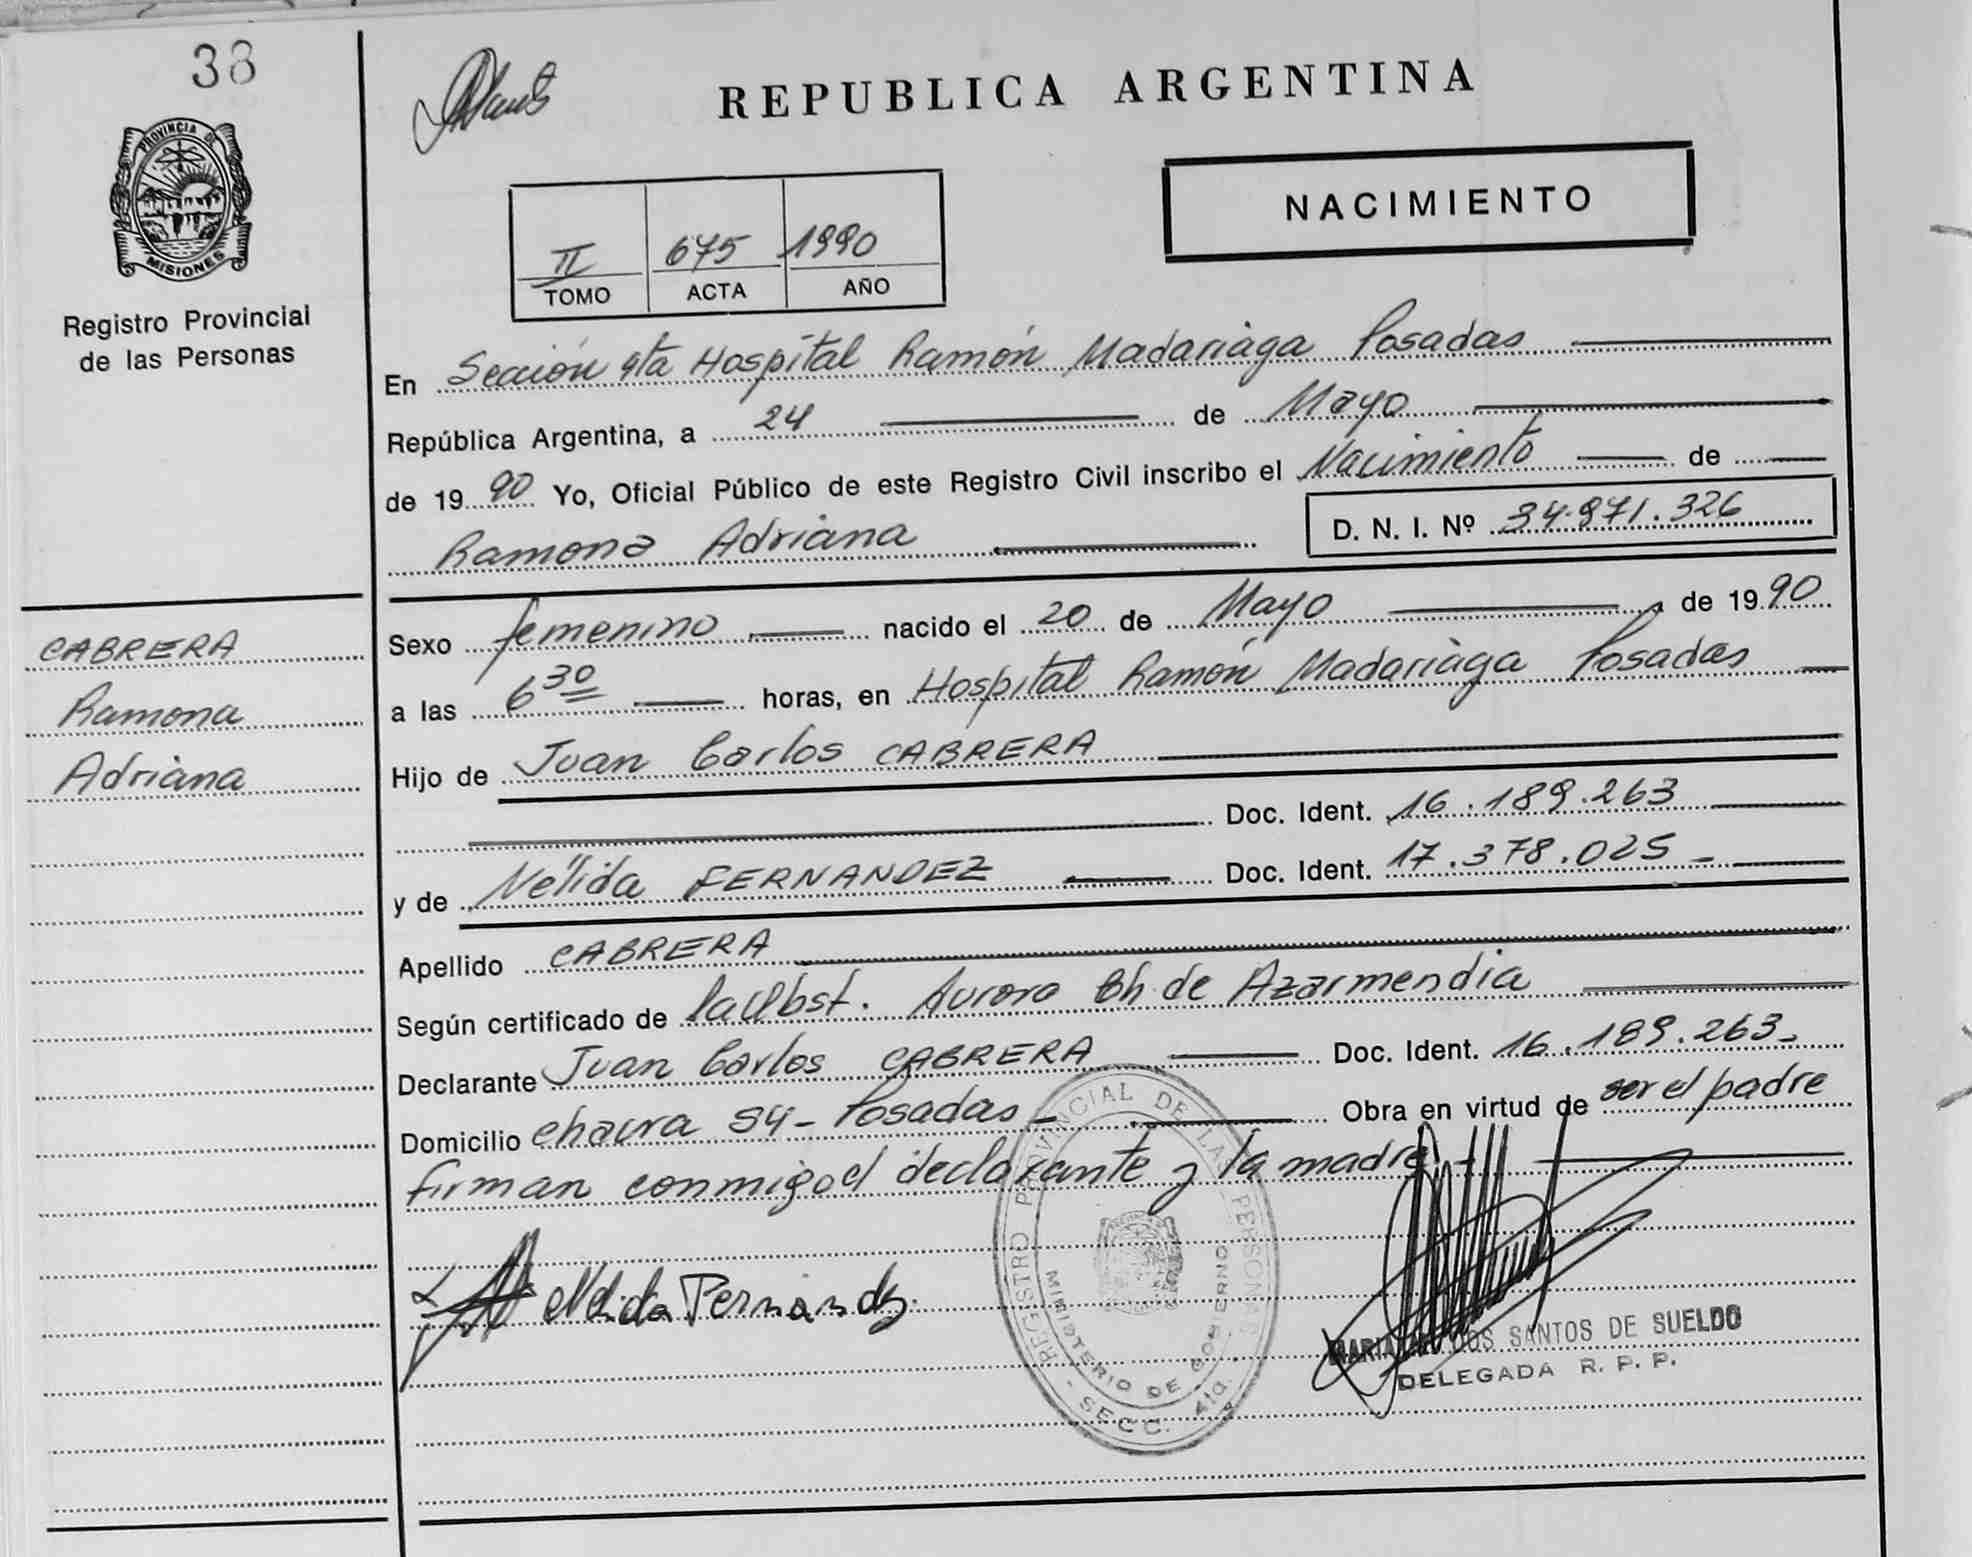 38
REPUBLICA ARGENTINA
PROVINCIA DE
MISIONES
Registro Provincial
de las Personas
NACIMIENTO
II 675 1990
TOMO ACTA AÑO
En Sección 4ta Hospital Ramón Madariaga Posadas
República Argentina, a 24 de Mayo
de 1990 Yo, Oficial Público de este Registro Civil inscribo el Nacimiento de
Ramona Adriana D. N. I. Nº 34.871.326
CABRERA
Ramona
Adriana
Sexo femenino nacido el 20 de Mayo de 1990
a las 6 30 horas, en Hospital Ramón Madariaga Posadas
Hijo de Juan Carlos CABRERA
Doc. Ident. 16.189.263
y de Nélida FERNANDEZ Doc. Ident. 17.378.025
Apellido CABRERA
Según certificado de la Obst. Aurora Ch de Azarmendia
Declarante Juan Carlos CABRERA Doc. Ident. 16.189.263
Domicilio chacra 94 - Posadas - Obra en virtud de ser el padre
firman conmigo el declarante y la madre
Nelida Fernandz.
REGISTRO PROVINCIAL DE LAS PERSONAS
MINISTERIO DE GOBIERNO
- SECC. 4ta.
SANTOS DE SUELDO
DELEGADA R. P. P.